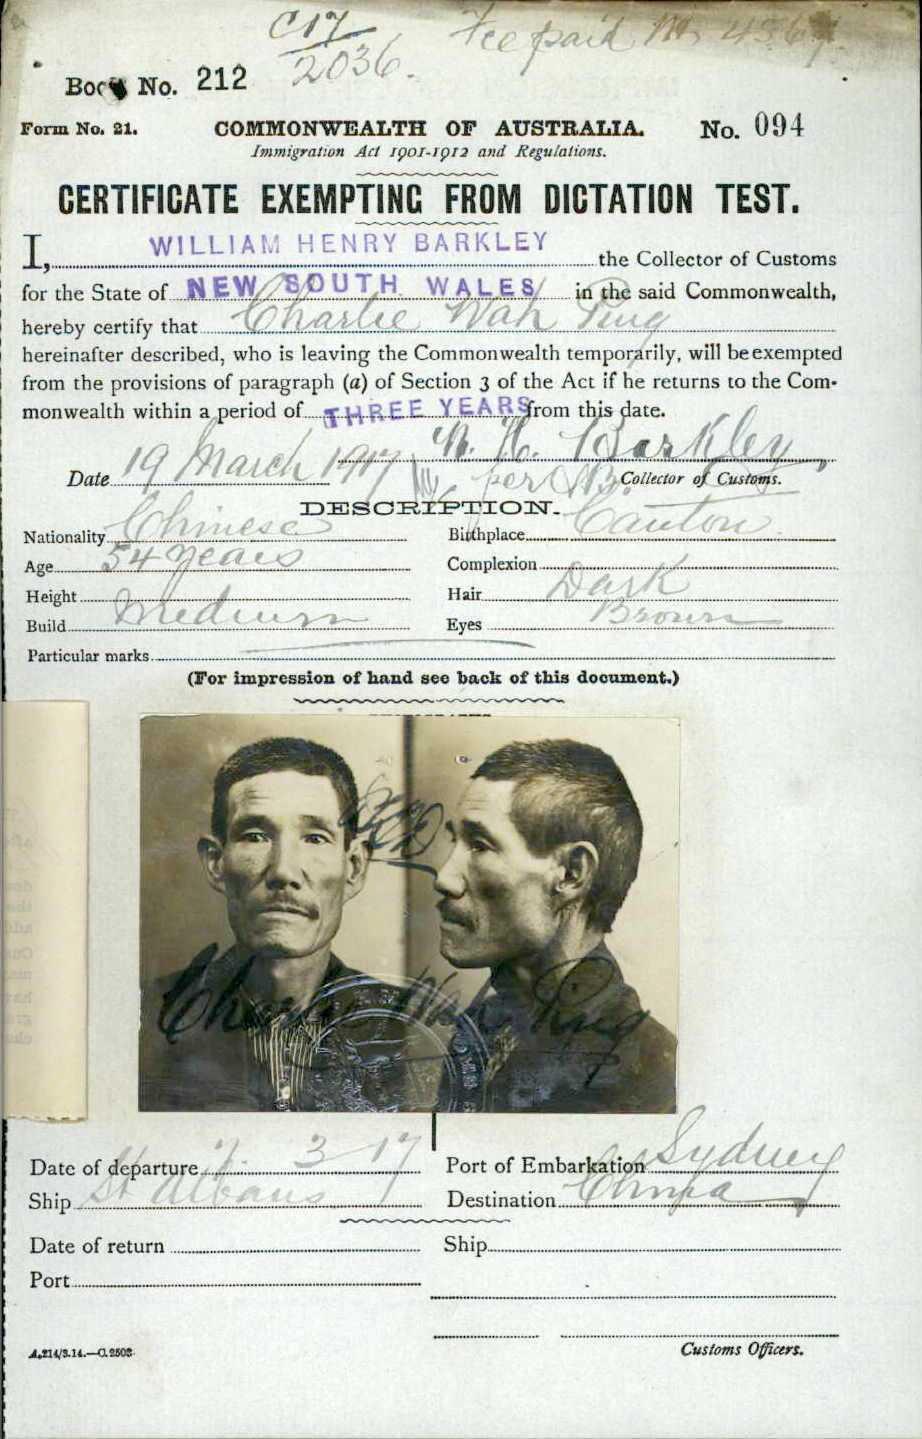 C17/2036. Fee paid No 4567
Book No. 212
Form No. 21. COMMONWEALTH OF AUSTRALIA. No. 094
Immigration Act 1901-1912 and Regulations.
CERTIFICATE EXEMPTING FROM DICTATION TEST.
I, WILLIAM HENRY BARKLEY the Collector of Customs
for the State of NEW SOUTH WALES in the said Commonwealth,
hereby certify that Charlie Wah Ping
hereinafter described, who is leaving the Commonwealth temporarily, will be exempted
from the provisions of paragraph (a) of Section 3 of the Act if he returns to the Com-
monwealth within a period of THREE YEARS from this date.
W. H. Barkley
Date 19 March 1917 per Collector of Customs.
DESCRIPTION.
Nationality Chinese Birthplace Canton
Age 54 years Complexion
Height Hair Dark
Build Medium Eyes Brown
Particular marks
(For impression of hand see back of this document.)
Charlie Wah Ping
Date of departure 3 17 Port of Embarkation Sydney
Ship St Albans Destination China
Date of return Ship
Port
A.214/3.14.—C.2503. Customs Officers.